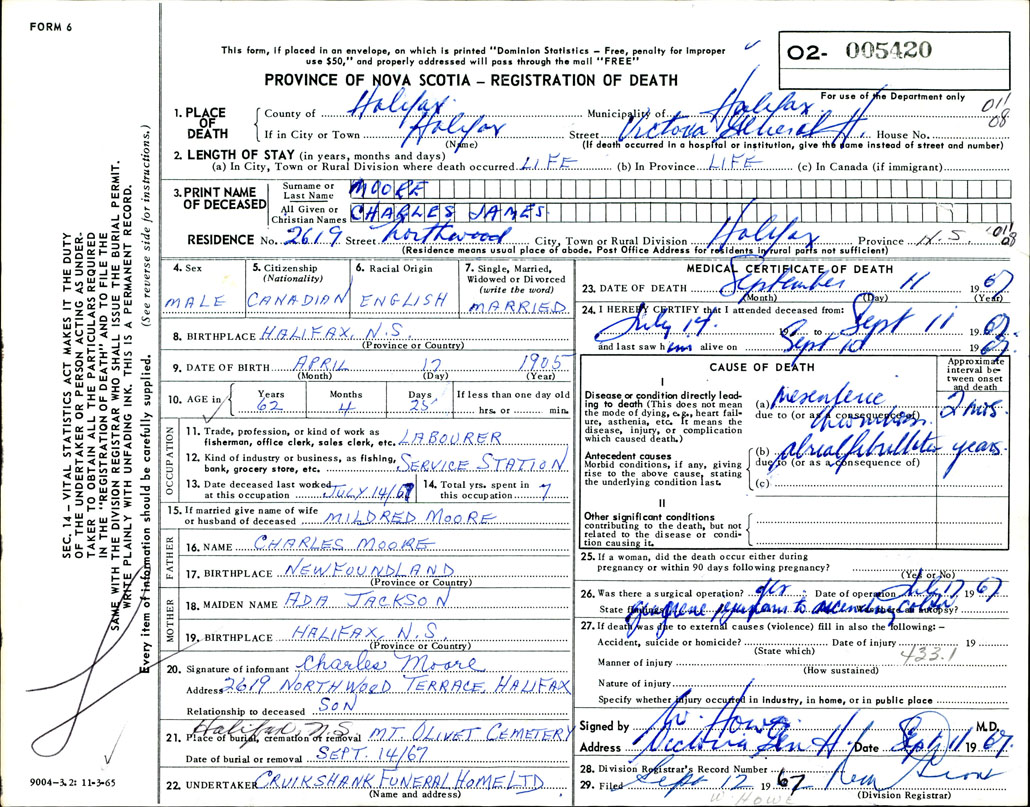 FORM 6
This form, if placed in an envelope, on which is printed "Dominion Statistics – Free, penalty for improper
use $50," and properly addressed will pass through the mail "FREE"
O2- 005420
PROVINCE OF NOVA SCOTIA – REGISTRATION OF DEATH
For use of the Department only
011
08
1. PLACE OF DEATH
County of Halifax Municipality of Halifax
If in City or Town Halifax Street Victoria General H. House No.
(Name) (If death occurred in a hospital or institution, give the name instead of street and number)
2. LENGTH OF STAY (in years, months and days)
(a) In City, Town or Rural Division where death occurred LIFE (b) In Province LIFE (c) In Canada (if immigrant)
3. PRINT NAME OF DECEASED
Surname or Last Name MOORE
All Given or Christian Names CHARLES JAMES
RESIDENCE No. 2619 Street Northwood City, Town or Rural Division Halifax Province N.S. 011 08
(Residence means usual place of abode. Post Office Address for residents in rural parts not sufficient)
4. Sex
MALE
5. Citizenship (Nationality)
CANADIAN
6. Racial Origin
ENGLISH
7. Single, Married, Widowed or Divorced (write the word)
MARRIED
8. BIRTHPLACE HALIFAX, N.S.
(Province or Country)
9. DATE OF BIRTH APRIL 17 1905
(Month) (Day) (Year)
10. AGE in Years Months Days If less than one day old
62 4 25 hrs. or min.
OCCUPATION
11. Trade, profession or kind of work as
fisherman, office clerk, sales clerk, etc. LABOURER
12. Kind of industry or business, as fishing,
bank, grocery store, etc. SERVICE STATION
13. Date deceased last worked at this occupation JULY 14/67
14. Total yrs. spent in this occupation 7
15. If married give name of wife
or husband of deceased MILDRED MOORE
FATHER
16. NAME CHARLES MOORE
17. BIRTHPLACE NEWFOUNDLAND
(Province or Country)
MOTHER
18. MAIDEN NAME ADA JACKSON
19. BIRTHPLACE HALIFAX, N.S.
(Province or Country)
20. Signature of informant Charles Moore
Address 2619 NORTHWOOD TERRACE, HALIFAX
Relationship to deceased SON
Halifax, N.S.
21. Place of burial, cremation or removal MT. OLIVET CEMETERY
Date of burial or removal SEPT. 14/67
22. UNDERTAKER CRUIKSHANK FUNERAL HOME LTD
(Name and address)
MEDICAL CERTIFICATE OF DEATH
23. DATE OF DEATH September 11 1967
(Month) (Day) (Year)
24. I HEREBY CERTIFY that I attended deceased from:
July 14 19 to Sept 11 1967
and last saw him alive on Sept 10 1967
CAUSE OF DEATH
Approximate interval between onset and death
I
Disease or condition directly leading to death (This does not mean
the mode of dying, e.g., heart failure, asthenia, etc. It means the
disease, injury, or complication
which caused death.)
(a) Mesenteric
due to (or as a consequence of)
thrombosis
2 mos
Antecedent causes
Morbid conditions, if any, giving
rise to the above cause, stating
the underlying condition last.
(b) atrial fibrillation years
due to (or as a consequence of)
(c)
II
Other significant conditions
contributing to the death, but not
related to the disease or condition causing it.
25. If a woman, did the death occur either during
pregnancy or within 90 days following pregnancy?
(Yes or No)
26. Was there a surgical operation? yes Date of operation July 17 1967
State findings gangrene jejunum to ascending colon Was there an autopsy?
27. If death was due to external causes (violence) fill in also the following: –
Accident, suicide or homicide? Date of injury 19
(State which)
433.1
Manner of injury
(How sustained)
Nature of injury
Specify whether injury occurred in industry, in home, or in public place
Signed by W. Howe M.D.
Address Victoria Gen H. Date Sept 11 1967
28. Division Registrar's Record Number
29. Filed Sept 12 1967
(Division Registrar)
W HOWE
SEC. 14 – VITAL STATISTICS ACT MAKES IT THE DUTY
OF THE UNDERTAKER OR PERSON ACTING AS UNDERTAKER TO OBTAIN ALL THE PARTICULARS REQUIRED
IN THE "REGISTRATION OF DEATH" AND TO FILE THE
SAME WITH THE DIVISION REGISTRAR WHO SHALL ISSUE THE BURIAL PERMIT.
WRITE PLAINLY WITH UNFADING INK. THIS IS A PERMANENT RECORD.
Every item of information should be carefully supplied. (See reverse side for instructions.)
9004-3.2: 11-3-65